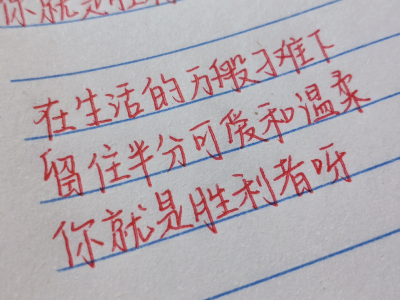 你就是胜利
在生活的万般刁难下
留住半分可爱和温柔
你就是胜利者呀